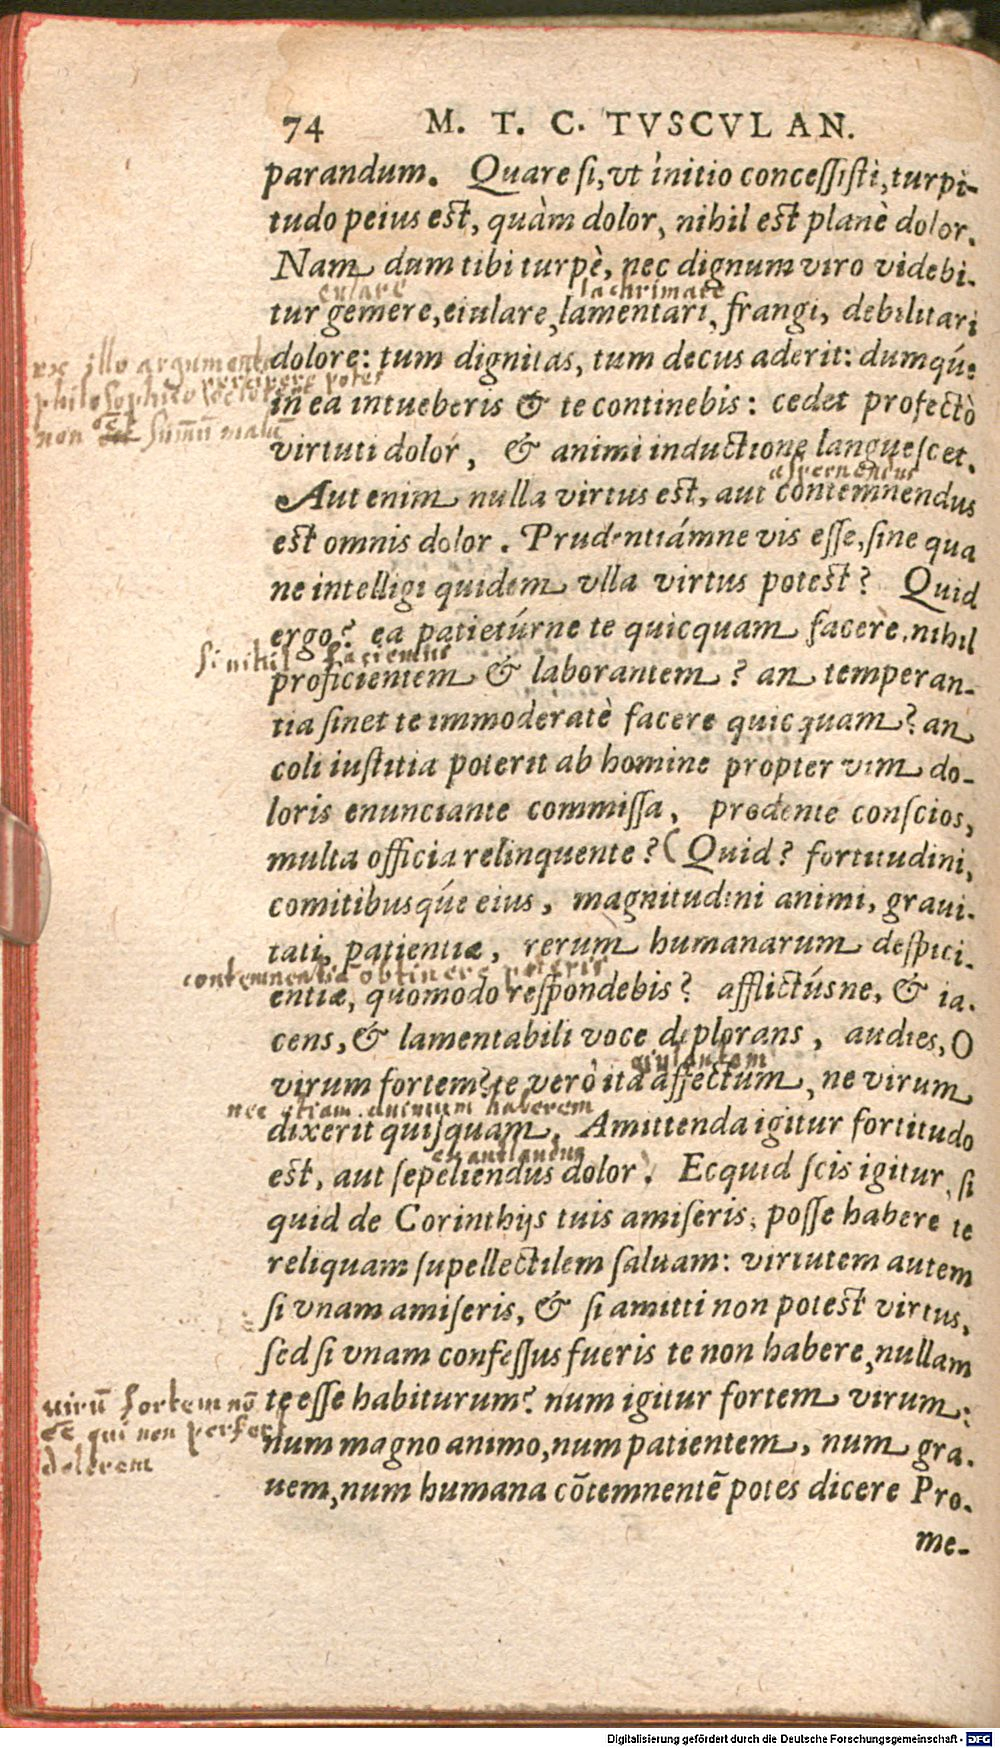 74 M. T. C. TVSCVLAN.
parandum. Quare si, vt initio concessisti, turpi-
tudo peius est, quàm dolor, nihil est planè dolor.
Nam dum tibi turpè, nec dignum viro videbi-
eulare lachrimare
tur gemere, eiulare, lamentari, frangi, debilitari
dolore: tum dignitas, tum decus aderit: dumqúe
ex illo argumento
percipere potes
philosophico
non est summū malū
in ea intueberis & te continebis: cedet profectò
virtuti dolor, & animi inductione languescet.
aspernendus
Aut enim nulla virtus est, aut contemnendus
est omnis dolor. Prudentiámne vis esse, sine qua
ne intelligi quidem vlla virtus potest? Quid
ergo? ea patietúrne te quicquam facere, nihil
si nihil faciemus
proficientem & laborantem? an temperan-
tia sinet te immoderatè facere quicquam? an
coli iustitia poterit ab homine propter vim do-
loris enunciante commissa, prodente conscios,
multa officia relinquente? (Quid? fortitudini,
comitibusqúe eius, magnitudini animi, graui-
tati, patientiæ, rerum humanarum despici-
obtinere poteris
entiæ, quomodo respondebis? afflictúsne, & ia-
cens, & lamentabili voce deplorans, audies, O
eiulantem
virum fortem? te verò ita affectum, ne virum
nec etiam haberem
dixerit quisquam. Amittenda igitur fortitudo
exantlandus
est, aut sepeliendus dolor. Ecquid scis igitur, si
quid de Corinthijs tuis amiseris, posse habere te
reliquam supellectilem saluam: virtutem autem
si vnam amiseris, & si amitti non potest virtus,
sed si vnam confessus fueris te non habere, nullam
te esse habiturum? num igitur fortem virum:
uirū fortem nō
eē qui non perfert
dolorem
num magno animo, num patientem, num gra-
uem, num humana cōtemnentē potes dicere Pro-
me-
Digitalisierung gefördert durch die Deutsche Forschungsgemeinschaft - DFG